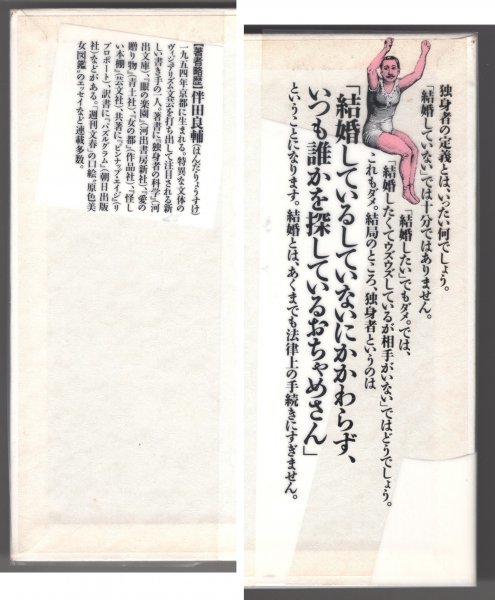 独身者の定義とは、いったい何でしょう。
「結婚していない」では十分ではありません。
「結婚したい」でもダメ。では、
「結婚したくてウズウズしているが相手がいない」ではどうでしょう。
これもダメ。結局のところ、独身者というのは
「結婚しているしていないにかかわらず、
いつも誰かを探しているおちゃめさん」
ということになります。結婚とは、あくまでも法律上の手続きにすぎません。
【著者略歴】伴田良輔(はんだりょうすけ)
一九五四年京都に生まれる。特異な文体の
ヴィジアリズム文芸を打ち出して注目される新
しい書き手の一人。著書に『独身者の科学』(河
出文庫)、『眼の楽園』(河出書房新社)、『愛の
贈り物』(青土社)、『女の都』(作品社)、『怪し
い本棚』(芸文社)、共著に『ピンナップ・エイジ』(リ
ブロポート)、訳書に『パズルグラム』(朝日出版
社)などがある。『週刊文春』の口絵“原色美
女図鑑”のエッセイなど連載多数。